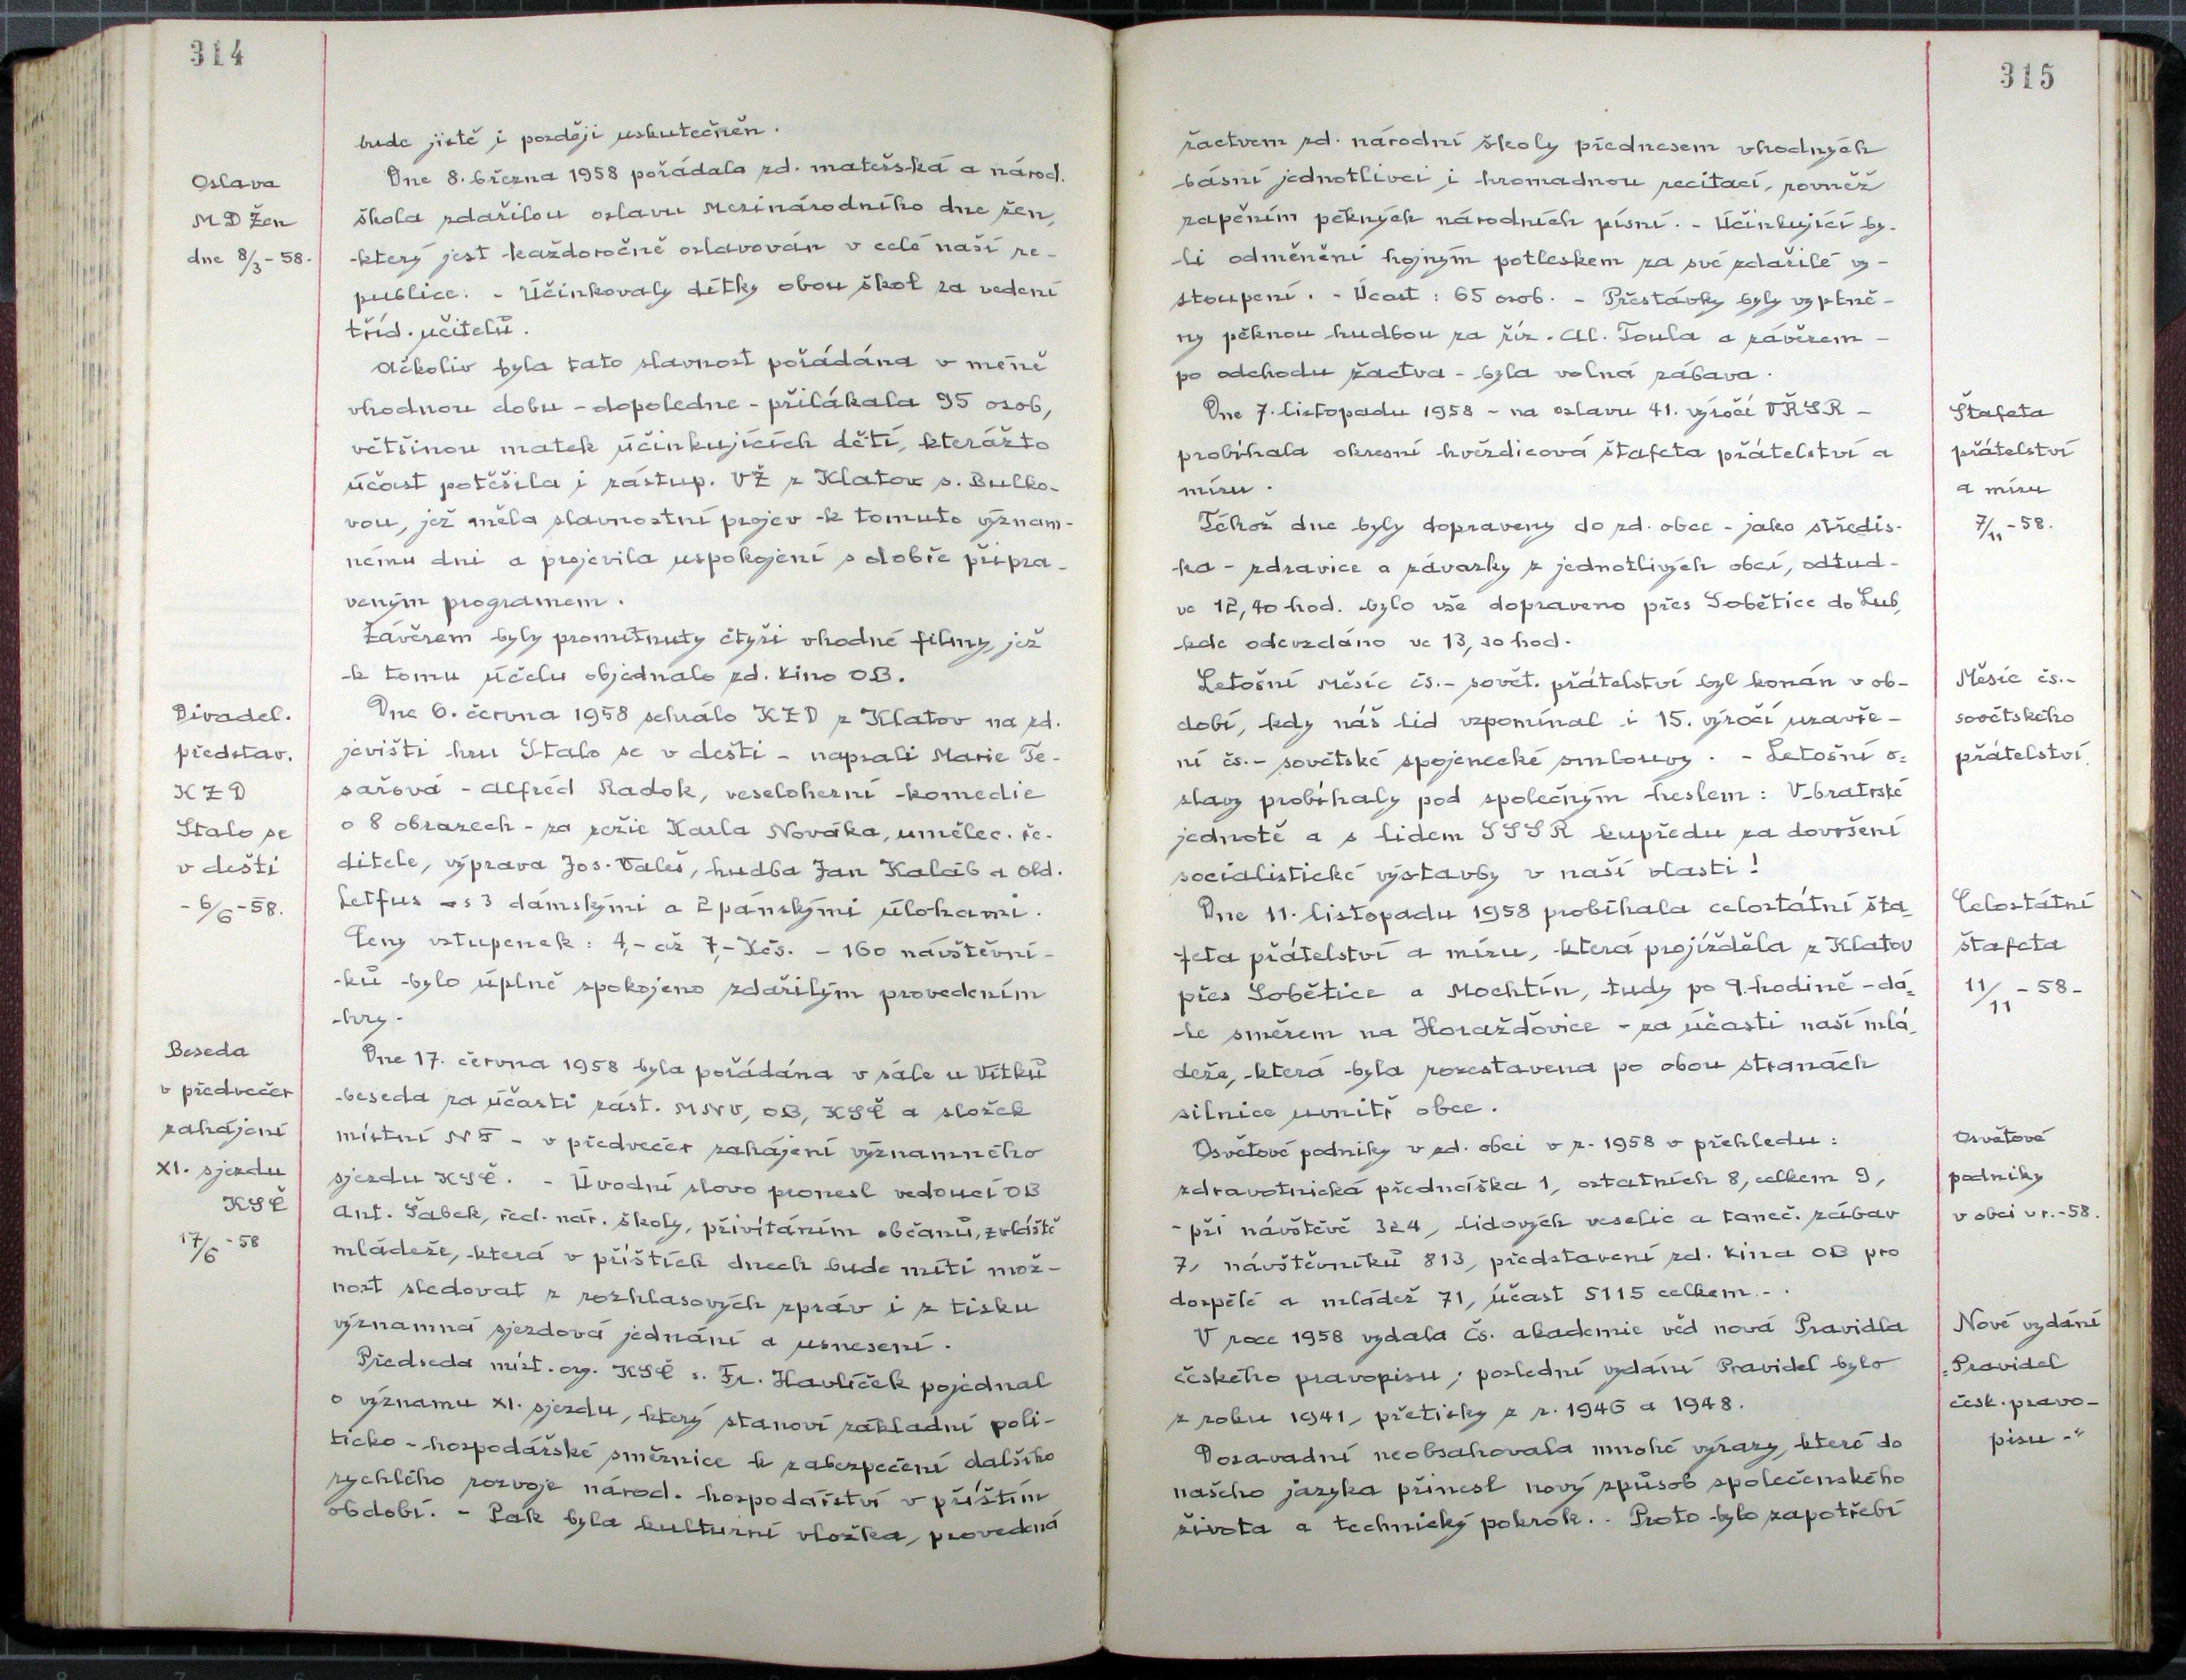 314
bude jistě i později uskutečněn.
Oslava
MD Žen
dne 8/3 - 58.
Dne 8. března 1958 pořádala zd. mateřská a národ.
škola zdařilou oslavu Mezinárodního dne žen,
který jest každoročně oslavován v celé naší re-
publice. - Účinkovaly dítky obou škol za vedení
tříd. učitelů.
Ačkoliv byla tato slavnost pořádána v méně
vhodnou dobu - dopoledne - přilákala 95 osob,
většinou matek účinkujících dětí, kterážto
účast potěšila i zástup. VŽ z Klatov s. Bulko-
vou, jež měla slavnostní projev k tomuto význam-
nému dni a projevila uspokojení s dobře připra-
veným programem.
Závěrem byly promítnuty čtyři vhodné filmy, jež
k tomu účelu objednalo zd. kino OB.
Divadel.
představ.
KZD
Stalo se
v dešti
- 6/6 - 58.
Dne 6. června 1958 sehrálo KZD z Klatov na zd.
jevišti hru Stalo se v dešti - napsali Marie Te-
sařová - Alfréd Radok, veseloherní komedie
o 8 obrazech - za režie Karla Nováka, umělec. ře-
ditele, výprava Jos. Valeš, hudba Jan Kaláb a Old.
Letfus - s 3 dámskými a 2 pánskými úlohami.
Ceny vstupenek: 4,- až 7,- Kčs. - 160 návštěvní-
ků bylo úplně spokojeno zdařilým provedením
hry.
Beseda
v předvečer
zahájení
XI. sjezdu
KSČ
17/6 - 58
Dne 17. června 1958 byla pořádána v sále u Vítků
beseda za účasti zást. MNV, OB, KSČ a složek
místní NF - v předvečer zahájení významného
sjezdu KSČ. - Úvodní slovo pronesl vedoucí OB
Ant. Šabek, řed. nár. školy, přivítáním občanů, zvláště
mládeže, která v příštích dnech bude míti mož-
nost sledovat z rozhlasových zpráv i z tisku
významná sjezdová jednání a usnesení.
Předseda míst. org. KSČ s. Fr. Havlíček pojednal
o významu XI. sjezdu, který stanoví základní poli-
ticko - hospodářské směrnice k zabezpečení dalšího
rychlého rozvoje národ. hospodářství v příštím
období. - Pak byla kulturní vložka, provedená
315
žactvem zd. národní školy přednesem vhodných
básní jednotlivci i hromadnou recitací, rovněž
zapěním pěkných národních písní. - Účinkující by-
li odměněni hojným potleskem za své zdařilé vy-
stoupení. - Účast: 65 osob. - Přestávky byly vyplně-
ny pěknou hudbou za říz. Al. Toula a závěrem -
po odchodu žactva - byla volná zábava.
Štafeta
přátelství
a míru
7/11 - 58.
Dne 7. listopadu 1958 - na oslavu 41. výročí VŘSR -
probíhala okresní hvězdicová štafeta přátelství a
míru.
Téhož dne byly dopraveny do zd. obce - jako středis-
ka - zdravice a závazky z jednotlivých obcí, odtud -
ve 12,40 hod. bylo vše dopraveno přes Sobětice do Lub,
kde odevzdáno ve 13,30 hod.
Měsíc čs.-
sovětského
přátelství.
Letošní Měsíc čs. - sovět. přátelství byl konán v ob-
dobí, kdy náš lid vzpomínal i 15. výročí uzavře-
ní čs. - sovětské spojenecké smlouvy. - Letošní o=
slavy probíhaly pod společným heslem: V bratrské
jednotě a s lidem SSSR kupředu za dovršení
socialistické výstavby v naší vlasti!
Celostátní
štafeta
11/11 - 58 -
Dne 11. listopadu 1958 probíhala celostátní šta=
feta přátelství a míru, která projížděla z Klatov
přes Sobětice a Mochtín, tudy po 9. hodině - dá=
le směrem na Horažďovice - za účasti naší mlá=
deže, která byla rozestavena po obou stranách
silnice uvnitř obce.
Osvětové
podniky
v obci v r. - 58.
Osvětové podniky v zd. obci v r. 1958 v přehledu:
zdravotnická přednáška 1, ostatních 8, celkem 9,
- při návštěvě 324, lidových veselic a taneč. zábav
7, návštěvníků 813, představení zd. kina OB pro
dospělé a mládež 71, účast 5115 celkem. - .
Nové vydání
"Pravidel
česk. pravo-
pisu -"
V roce 1958 vydala Čs. akademie věd nová Pravidla
českého pravopisu; poslední vydání Pravidel bylo
z roku 1941, přetisky z r. 1946 a 1948.
Dosavadní neobsahovala mnohé výrazy, které do
našeho jazyka přinesl nový způsob společenského
života a technický pokrok. . Proto bylo zapotřebí